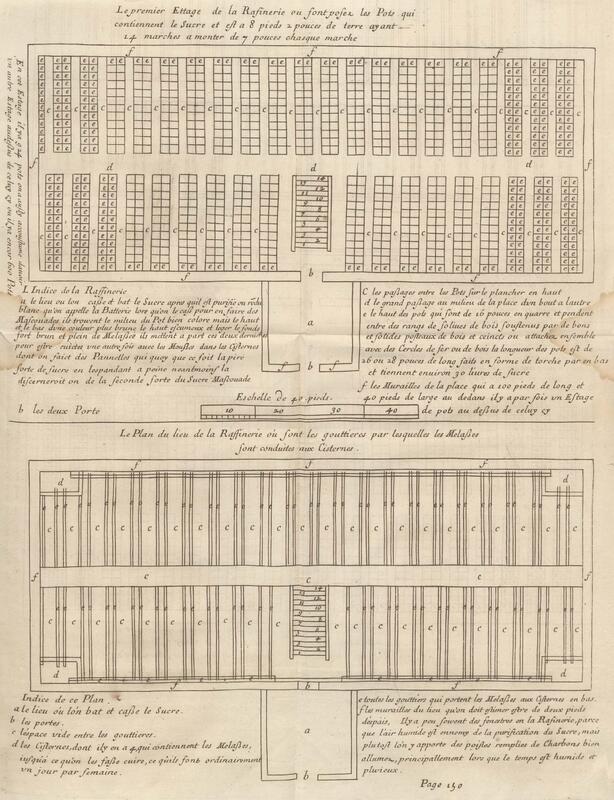 Le premier Ettage de la Rafinerie ou sont posez les Pots qui
contiennent le Sucre et est a 8 pieds 2 pouces de terre ayant
14 marches a monter de 7 pouces chasque marche
En cet Estage il y a 924 pots on a aussy accoustumé
un autre Estage audessus de celuy cy ou il y a encor 600 Pots
I. Indice de la Raffinerie
a le lieu ou lon casse et bat le Sucre apres quil est purifié ou rédu
blanc qu'on appelle la Batterie lors qu'on le casse pour en faire des
Mascouades, ils trouvent le milieu du Pot bien colore mais le haut
et le bas d'une couleur plus brune le haut escumeux et leger le fonds
fort brun et plein de Melasses ils mettent a part ces deux derniers
pour estre cuictes une autre fois avec la Mousses dans les Cisternes
dont on faict des Pannelles qui quoy que ce soit la pire
forte de sucre en lespandant a peine neantmoins la
discerneroit on de la seconde sorte du Sucre Mascouade
b les deux Porte
C les passages entre les Pots sur le plancher en haut
d le grand passage au milieu de la place d'un bout a lautre
e le haut des pots qui sont de 16 pouces en quarre et pendent
entre des rangs de solives de bois soustenus par de bons
et solides posteaux de bois et ceincts ou attachez ensemble
avec des Cercles de fer ou de bois la longueur des pots est de
26 ou 28 pouces de long faits en forme de torche par en bas
et tiennent environ 30 livres de sucre
f les Murailles de la place qui a 100 pieds de long et
40 pieds de large au dedans il y a par fois un Estage
de pots au dessus de celuy cy
Eschelle de 40 pieds.
10 20 30 40
Le Plan du lieu de la Raffinerie où sont les gouttieres par lesquelles les Melasses
sont conduites aux Cisternes.
Indice de ce Plan.
a le lieu où lon bat et casse le Sucre.
b les portes.
c lespace vide entre les gouttieres.
d les Cisternes, dont ily en a 4, qui contiennent les Melasses,
iusqu'a ce qu'on les fasse cuire, ce qu'ils font ordinairement
un jour par semaine.
e toutes les gouttiers qui portent les Melasses aux Cisternes en bas.
f les murailles du lieu qu'on doit estimer estre de deux pieds
despais, Il y a peu souvent des fenestres en la Rafinerie, parce
que lair humide est ennemy de la purification du Sucre, mais
plutost lon y apporte des poisles remplies de Charbons bien
allumez, principallement lors que le temps est humide et
pluvieux.
Page 130